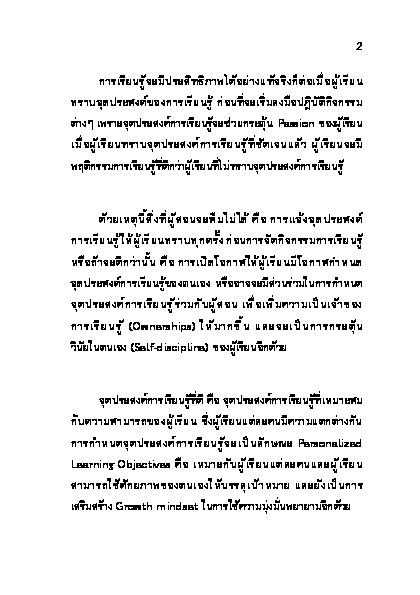 2
การเรียนรู้จะมีประสิทธิภาพได้อย่างแท้จริงก็ต่อเมื่อผู้เรียน
ทราบจุดประสงค์ของการเรียนรู้ ก่อนที่จะเริ่มลงมือปฏิบัติกิจกรรม
ต่างๆ เพราะจุดประสงค์การเรียนรู้จะช่วยกระตุ้น Passion ของผู้เรียน
เมื่อผู้เรียนทราบจุดประสงค์การเรียนรู้ที่ชัดเจนแล้ว ผู้เรียนจะมี
พฤติกรรมการเรียนรู้ที่ดีกว่าผู้เรียนที่ไม่ทราบจุดประสงค์การเรียนรู้
ด้วยเหตุนี้สิ่งที่ผู้สอนจะลืมไม่ได้ คือ การแจ้งจุดประสงค์
การเรียนรู้ให้ผู้เรียนทราบทุกครั้ง ก่อนการจัดกิจกรรมการเรียนรู้
หรือถ้าจะดีกว่านั้น คือ การเปิดโอกาสให้ผู้เรียนมีโอกาสกำหนด
จุดประสงค์การเรียนรู้ของตนเอง หรืออาจจะมีส่วนร่วมในการกำหนด
จุดประสงค์การเรียนรู้ร่วมกับผู้สอน เพื่อเพิ่มความเป็นเจ้าของ
การเรียนรู้ (Ownerships) ให้มากขึ้น และจะเป็นการกระตุ้น
วินัยในตนเอง (Self-discipline) ของผู้เรียนอีกด้วย
จุดประสงค์การเรียนรู้ที่ดี คือ จุดประสงค์การเรียนรู้ที่เหมาะสม
กับความสามารถของผู้เรียน ซึ่งผู้เรียนแต่ละคนมีความแตกต่างกัน
การกำหนดจุดประสงค์การเรียนรู้จะเป็นลักษณะ Personalized
Learning Objectives คือ เหมาะกับผู้เรียนแต่ละคนและผู้เรียน
สามารถใช้ศักยภาพของตนเองให้บรรลุเป้าหมาย และยังเป็นการ
เสริมสร้าง Growth mindset ในการใช้ความมุ่งมั่นพยายามอีกด้วย